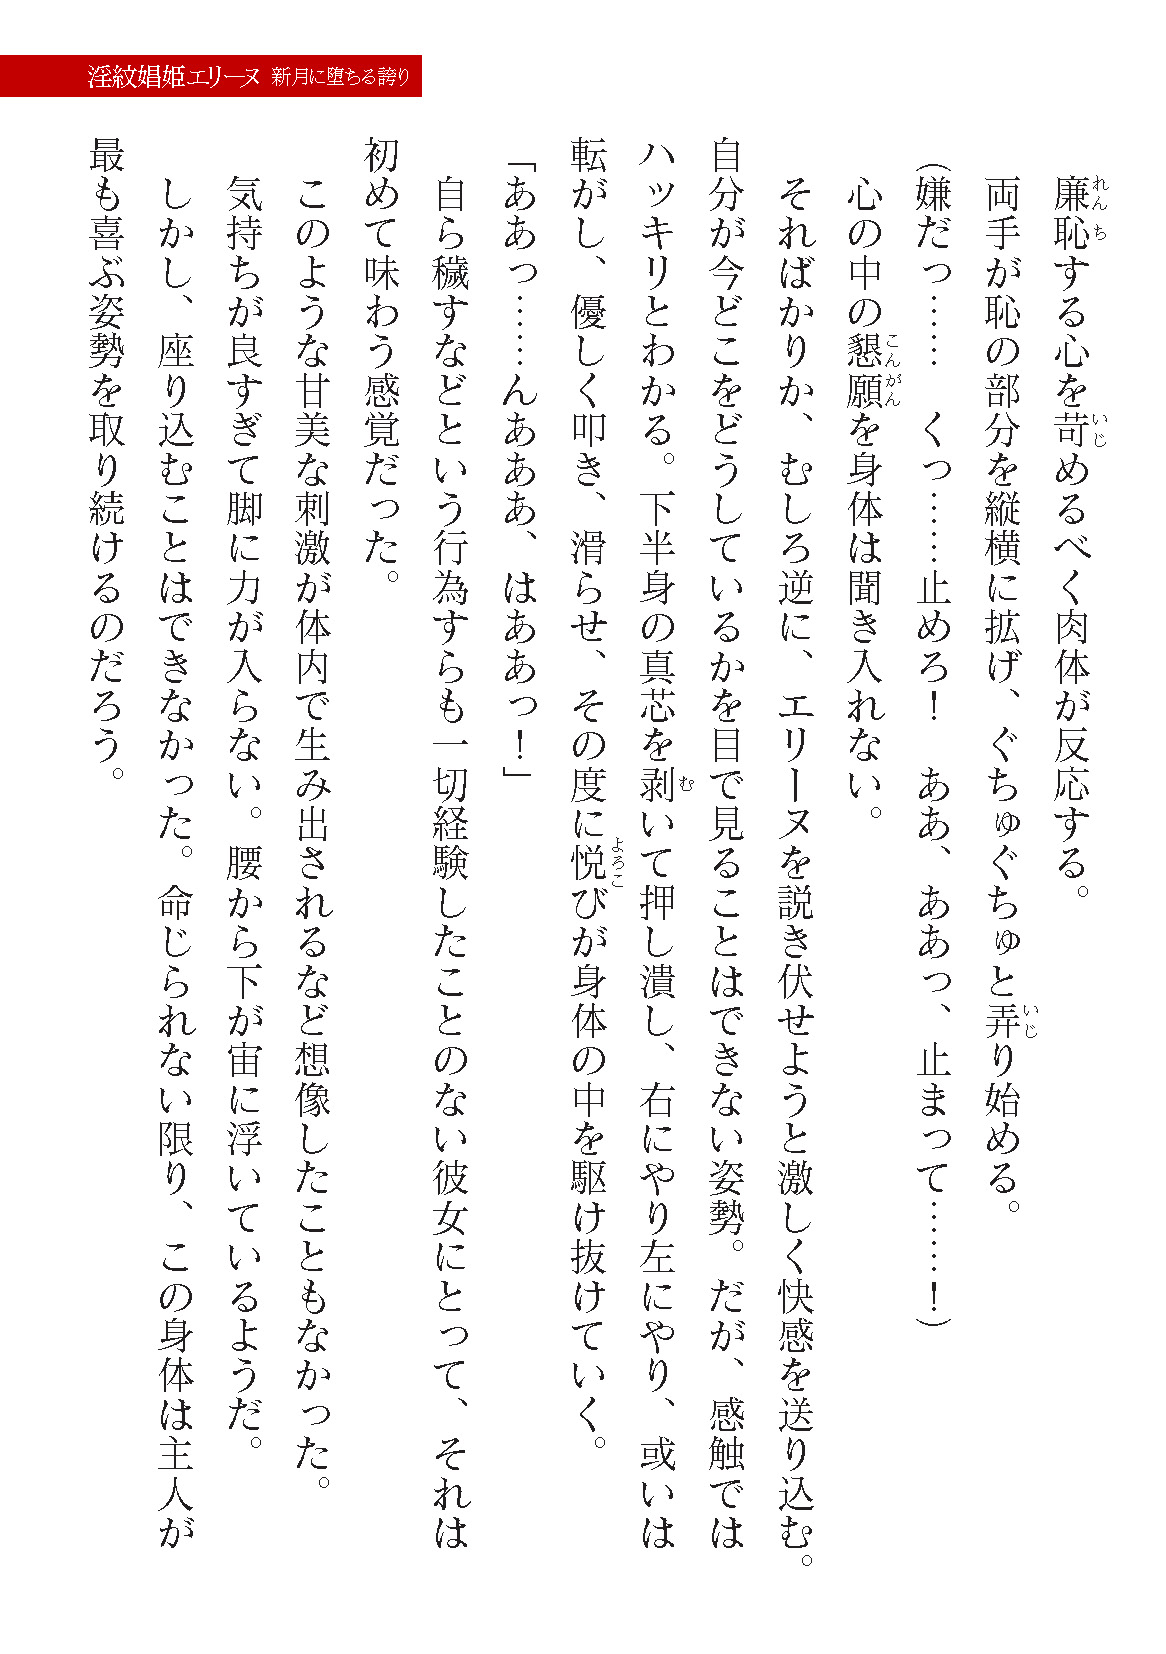 淫紋娼姫エリーヌ 新月に堕ちる誇り
廉恥する心を苛めるべく肉体が反応する。
両手が恥の部分を縦横に拡げ、ぐちゅぐちゅと弄り始める。
（嫌だっ……　くっ……止めろ！　ああ、ああっ、止まって……！）
心の中の懇願を身体は聞き入れない。
そればかりか、むしろ逆に、エリーヌを説き伏せようと激しく快感を送り込む。
自分が今どこをどうしているかを目で見ることはできない姿勢。だが、感触では
ハッキリとわかる。下半身の真芯を剥いて押し潰し、右にやり左にやり、或いは
転がし、優しく叩き、滑らせ、その度に悦びが身体の中を駆け抜けていく。
「ああっ……んあああ、はああっ！」
自ら穢すなどという行為すらも一切経験したことのない彼女にとって、それは
初めて味わう感覚だった。
このような甘美な刺激が体内で生み出されるなど想像したこともなかった。
気持ちが良すぎて脚に力が入らない。腰から下が宙に浮いているようだ。
しかし、座り込むことはできなかった。命じられない限り、この身体は主人が
最も喜ぶ姿勢を取り続けるのだろう。